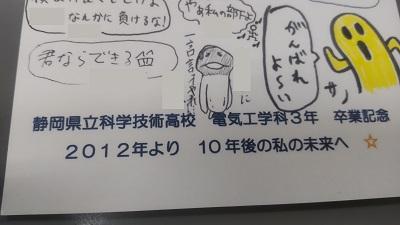 なんかに 負けるな!
やあ私の部下よ
君ならできる
一言言イやれ
に
がんばれ
よ〜い
サノ
静岡県立科学技術高校 電気工学科3年 卒業記念
2012年より 10年後の私の未来へ ☆